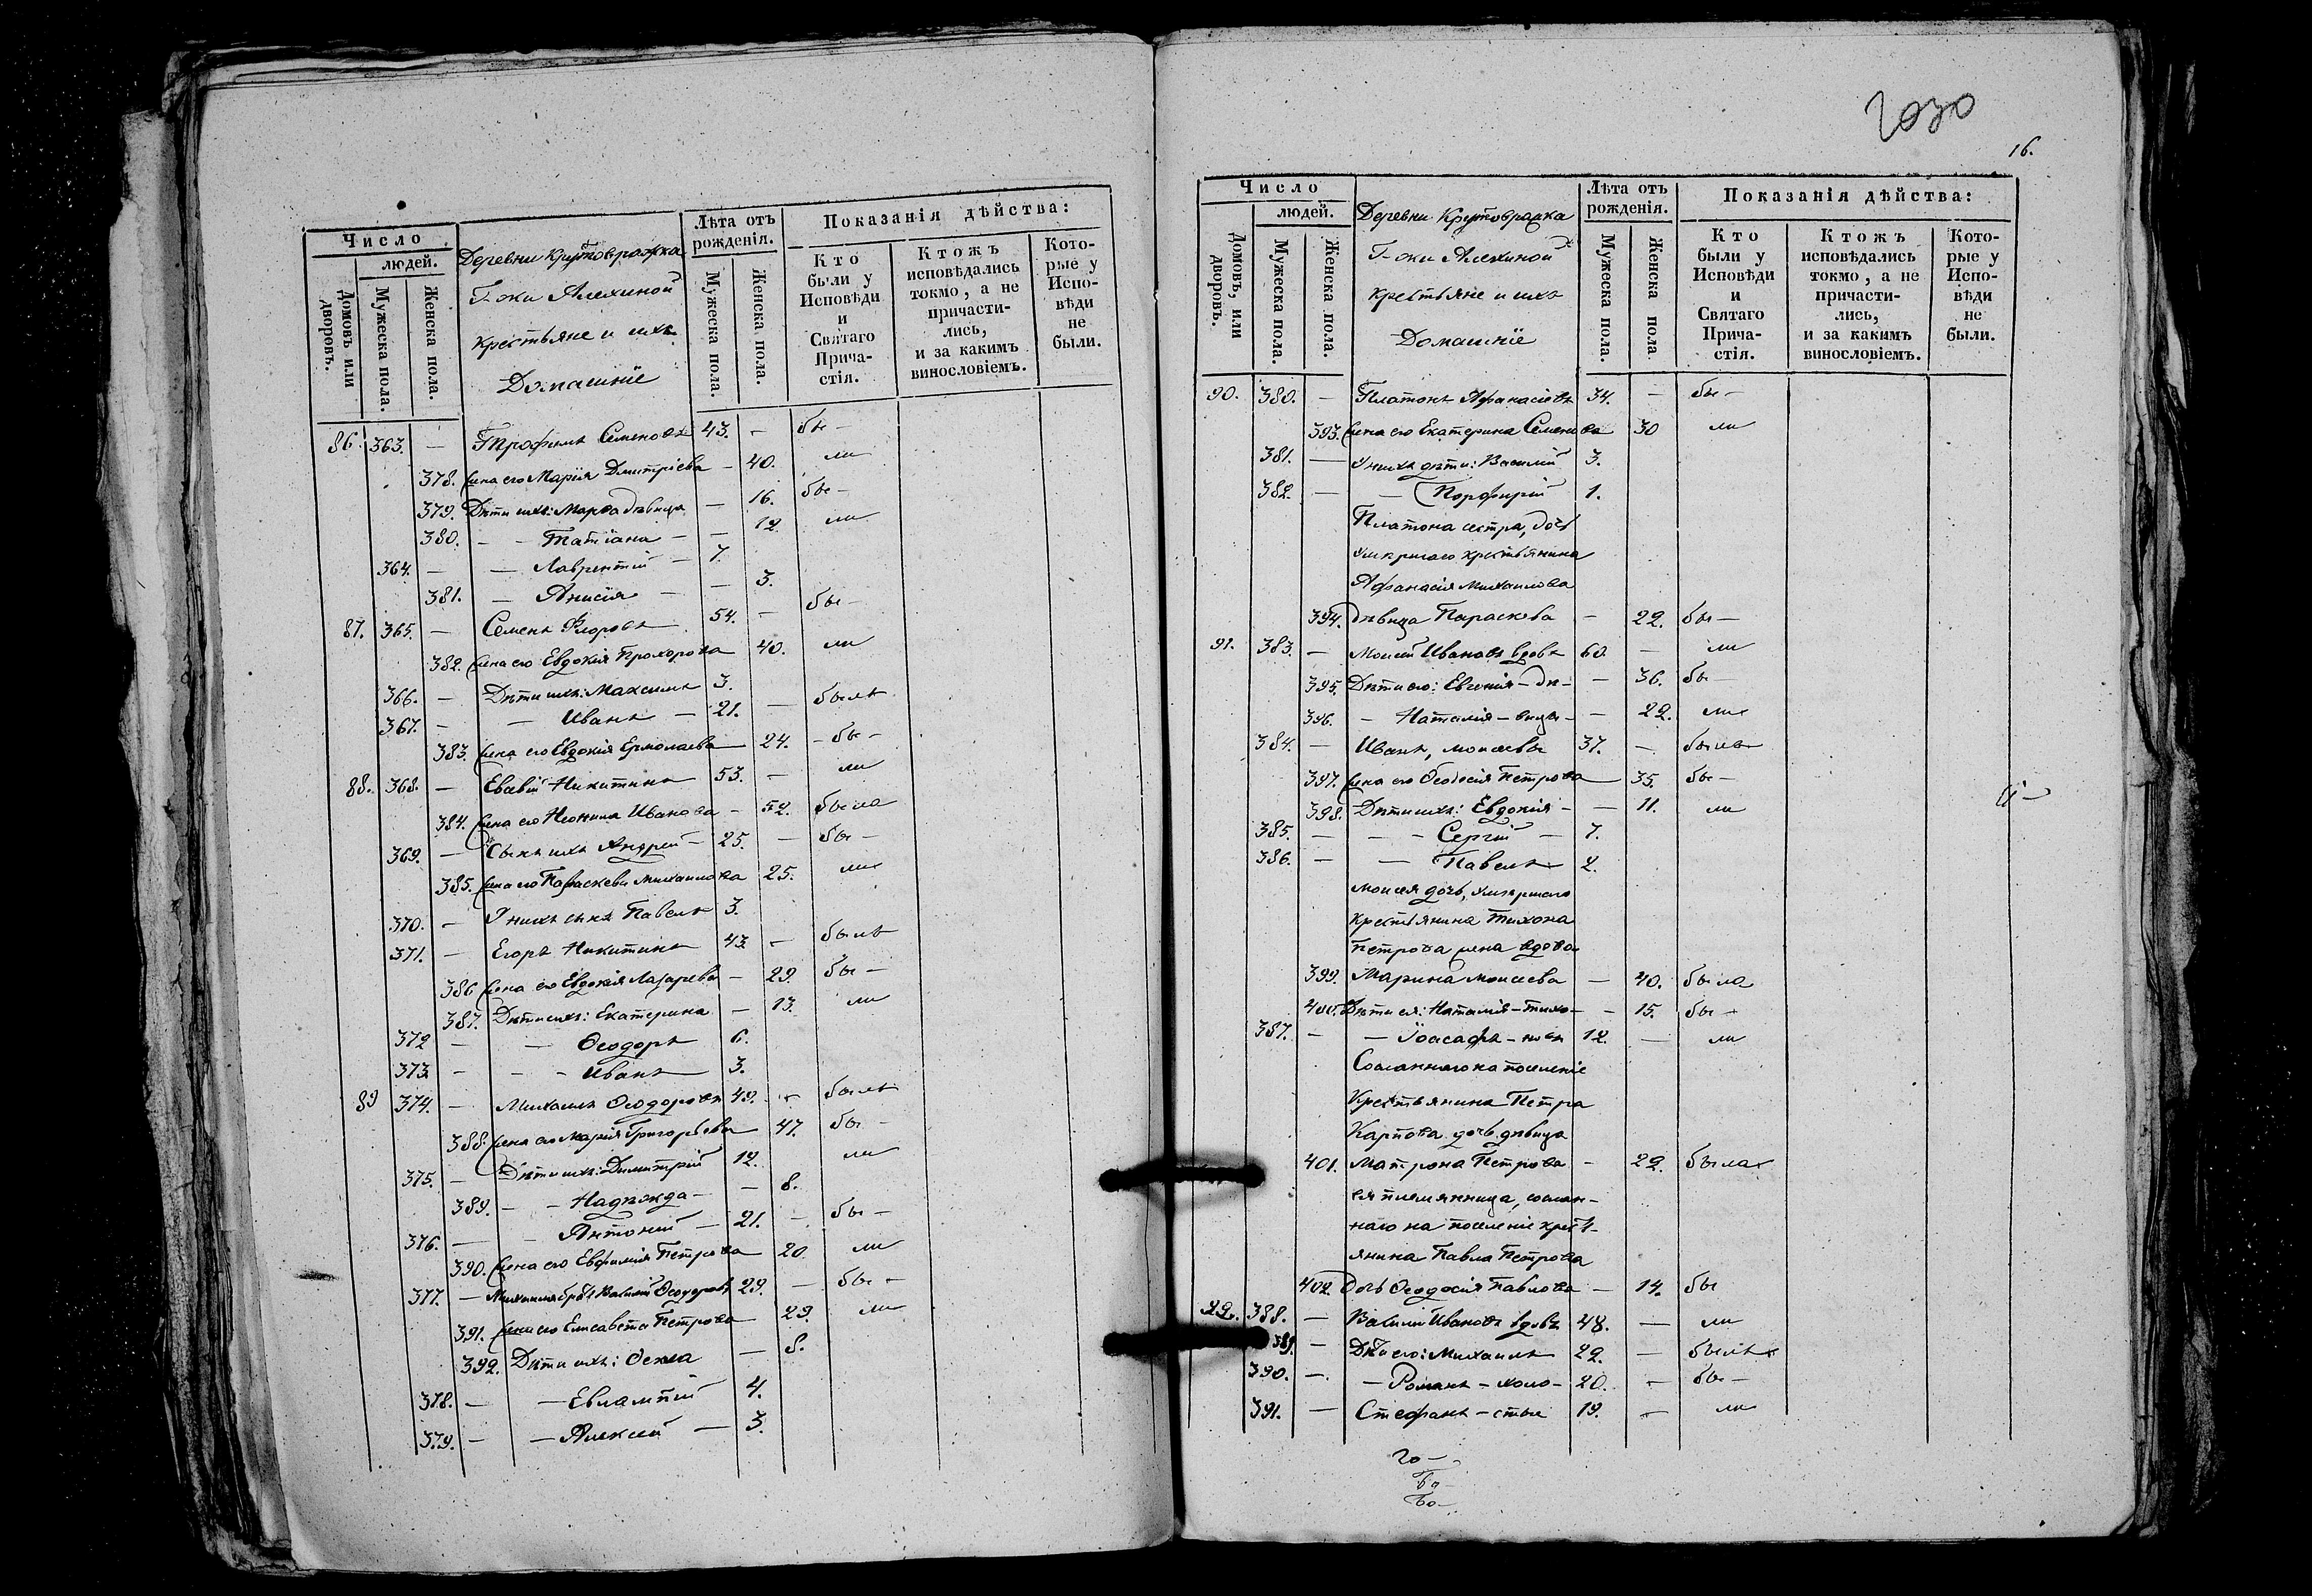 Число
людей.
Домовъ или дворовъ.
Мужеска пола.
Женска пола.
Деревни Крутовражка
Г-жи Алехиной
крестьяне и ихъ
Домашніе
Лѣта отъ рожденія.
Мужеска пола.
Женска пола.
Показанія дѣйства:
Кто были у Исповѣди и Святаго Причастія.
Ктожъ исповѣдались токмо, а не причастились, и за какимъ винословіемъ.
Которые у Исповѣди не были.
86. 363. — Трофимъ Семеновъ 43. — бы —
378. Жена его Марія Дмитріева — 40. ли
379. Дѣти ихъ: Марѳа дѣвица — 16. бы —
380. — — Татіана — — 12 ли
364. — — Лаврентій — 7.
381. — Анисія — — 3.
87. 365. — Семенъ Флоровъ 54. — бы —
382. Жена его Евдокія Прохорова 40. ли
366. — Дѣти ихъ: Максимъ 3.
367. — — Иванъ — 21. — былъ
383. Жена его Евдокія Ермолаева 24. — бы —
88. 368. — Никитинъ 53. — ли
384. Жена его Неонила Иванова — 52. была
369. — Сынъ ихъ Андрей — 25. — бы —
385. Жена его Параскева Михаилова 25. ли
370. — У нихъ сынъ Павелъ 3.
371. — Егоръ Никитинъ 43 — былъ
386 Жена его Евдокія Лазарева — 29. бы —
387. Дѣти ихъ: Екатерина — 13. ли
372 — — Ѳеодоръ 6.
373 — — — Иванъ 3.
89 374. — Михаилъ Ѳеодоровъ 49. — былъ
388. Жена его Марія Григорьева 47. бы —
375. — Дѣти ихъ: Димитрій 12. ли
389. — — Надежда — — 8.
376. — — Антоній — 21. — бы —
390. Жена его Евфимія Петрова 20 ли
377. — Михаила братъ Василій Ѳеодоровъ 29. — бы —
391. Жена его Елисавета Петрова 29. ли
392. Дѣти ихъ: Ѳекла — 8.
378. — — Евлампій 4.
379. — — Алексій — 3.
2030
16.
Число
людей.
Домовъ, или дворовъ.
Мужеска пола.
Женска пола.
Деревни Крутовражка
Г-жи Алехиной
крестьяне и ихъ
Домашніе
Лѣта отъ рожденія.
Мужеска пола.
Женска пола
Показанія дѣйства:
Кто были у Исповѣди и Святаго Причастія.
Ктожъ исповѣдались токмо, а не причастились, и за какимъ винословіемъ.
Которые у Исповѣди не были.
90. 380. — Платонъ Афанасіевъ 34. — бы —
393. Жена его Екатерина Семенова 30 ли
381. — У нихъ дѣти: Василій 3.
382. — — Порфирій 1.
Платона сестра, дочь
умершаго крестьянина
Афанасія Михаилова
394. дѣвица Параскева — 22. бы —
91. 383. — Моисей Ивановъ вдовъ 60. — ли
395. Дѣти его: Евгенія — дѣ — — 36. бы —
396. — Наталія — вицы — — 22. ли
384. — Иванъ, Моисеевы 37. — былъ
397. Жена его Ѳеодосія Петрова 35. бы —
398. Дѣти ихъ: Евдокія — — 11. ли
385. — — — Сергій — 7.
386. — — Павелъ 2.
Моисея дочь, умершаго
крестьянина Тихона
Петрова жена вдова
399. Марина Моисеева — 40. была
400. Дѣти ея: Наталія — Тихо — — 15. бы —
387. — — Іоасафъ — новы 12. — ли
Сосланнаго на поселеніе
Крестьянина Петра
Карпова дочь дѣвица
401. Матрона Петрова — 22. была
ея племянница, сослан-
наго на поселеніе крест-
янина Павла Петрова
402. Дочь Ѳеодосія Павлова — 14. бы
92. 388. — Василій Ивановъ вдовъ 48. — ли
389. — Дѣти его: Михаилъ 22. — былъ
390. — — Романъ — холо — 20. — бы —
391. — Стефанъ — стые 19. — ли